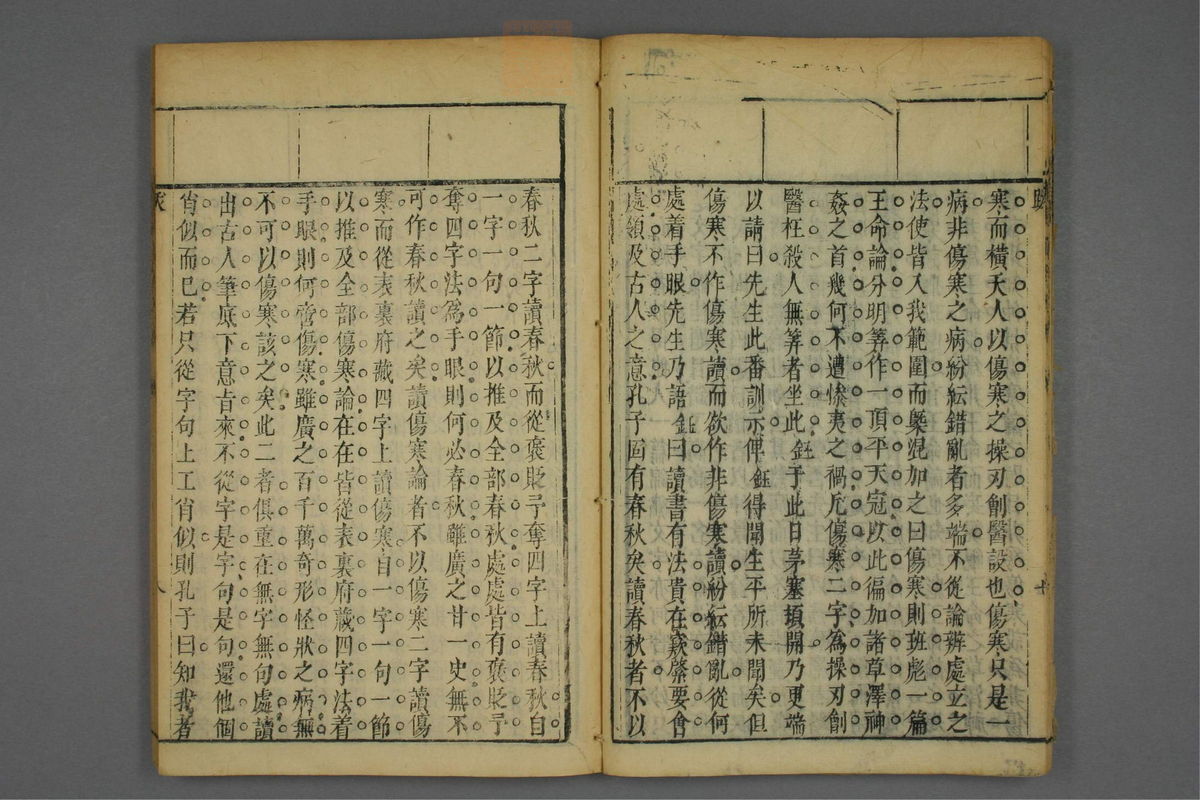 寒而橫夭人以傷寒之操刃創醫設也傷寒只是一
病非傷寒之病紛紜錯亂者多端不從論辨處立之
法使皆入我範圍而槩混加之曰傷寒則班彪一篇
王命論分明筭作一頂平天冠以此徧加諸草澤神
姦之首幾何不遭慘夷之禍凡傷寒二字為操刃創
醫枉殺人無筭者坐此鈺于此日茅塞頓開乃更端
以請曰先生此番訓示俾鈺得聞生平所未聞矣但
傷寒不作傷寒讀而欲作非傷寒讀紛紜錯亂從何
處着手眼先生乃語鈺曰讀書有法貴在窾綮要會
處領及古人之意孔子固有春秋矣讀春秋者不以
春秋二字讀春秋而從褒貶予奪四字上讀春秋自
一字一句一節以推及全部春秋處處皆有褒貶予
奪四字法為手眼則何必春秋雖廣之廿一史無不
可作春秋讀之矣讀傷寒論者不以傷寒二字讀傷
寒而從表裏府藏四字上讀傷寒自一字一句一節
以推及全部傷寒論在在皆從表裏府藏四字法着
手眼則何啻傷寒雖廣之百千萬奇形怪狀之病無
不可以傷寒該之矣此二者俱重在無字無句處讀
出古人筆底下意旨來不從字是字句是句還他個
肖似而已若只從字句上工肖似則孔子曰知我者
八